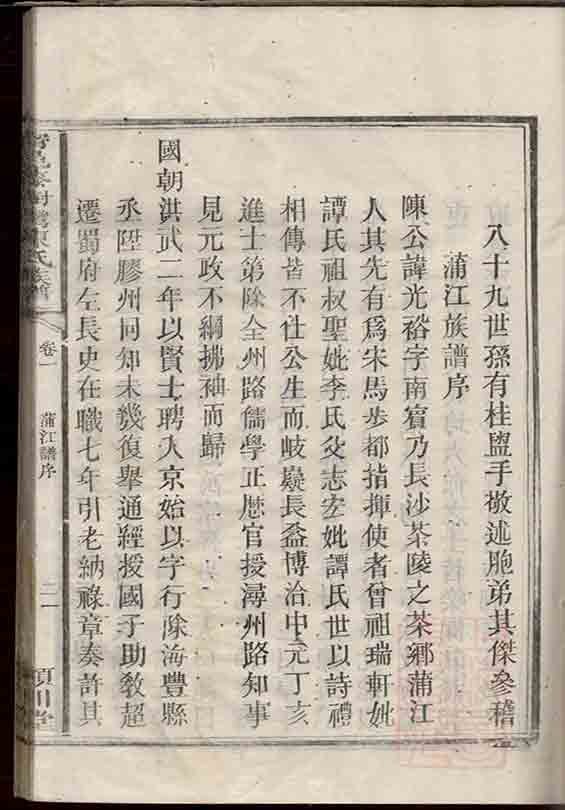 八十九世孫有桂盥手敬述胞弟其傑參稽
蒲江族譜序
陳公諱光裕字南賓乃長沙茶陵之茶鄉蒲江
人其先有爲宋馬步都指揮使者曾祖瑞軒妣
譚氏祖叔聖妣李氏父志宏妣譚氏世以詩禮
相傳皆不仕公生而岐嶷長益博洽中元丁亥
進士第除全州路儒學正歷官授潯州路知事
見元政不綱拂袖而歸
國朝洪武二年以賢士聘入京始以字行除海豐縣
丞陞膠州同知未幾復舉通經授國子助敎超
遷蜀府左長史在職七年引老納祿章奏許其
陳氏族譜
卷一
蒲江譜序
二
潁川堂